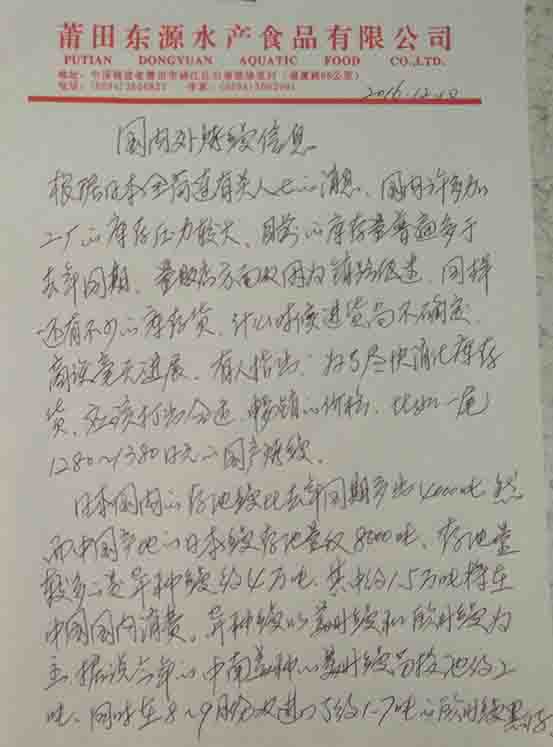 莆田东源水产食品有限公司
PUTIAN DONGYUAN AQUATIC FOOD CO.,LTD.
2016.12.10
国内外烤鳗信息
根据日本全荷连有关人士的消息、国内许多加
工厂的库存压力较大、目前的库存量普遍多于
去年同期、量贩店方面也因为销路低迷、同样
还有不少的库存货、什么时候进货尚不确定、
商谈毫无进展、有人指出：为了尽快消化库存
货、应该打出合适、畅销的价格、比如一尾
1280～1380日元的国产烤鳗。
日本国内的存池鳗比去年同期多出4000吨、然
而中国产地的日本鳗存池量仅8000吨、存池量
较多的是异种鳗约4万吨、其中约1.5万吨将在
中国国内消费。异种鳗以美洲鳗和欧洲鳗为
主、据说今年的中南美种的美洲鳗苗投池约2
吨、同时在8～9月份又进了约1-7吨的欧洲鳗黑仔